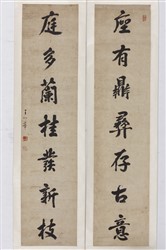 座有鼎彝存古意
庭多蘭桂發新枝